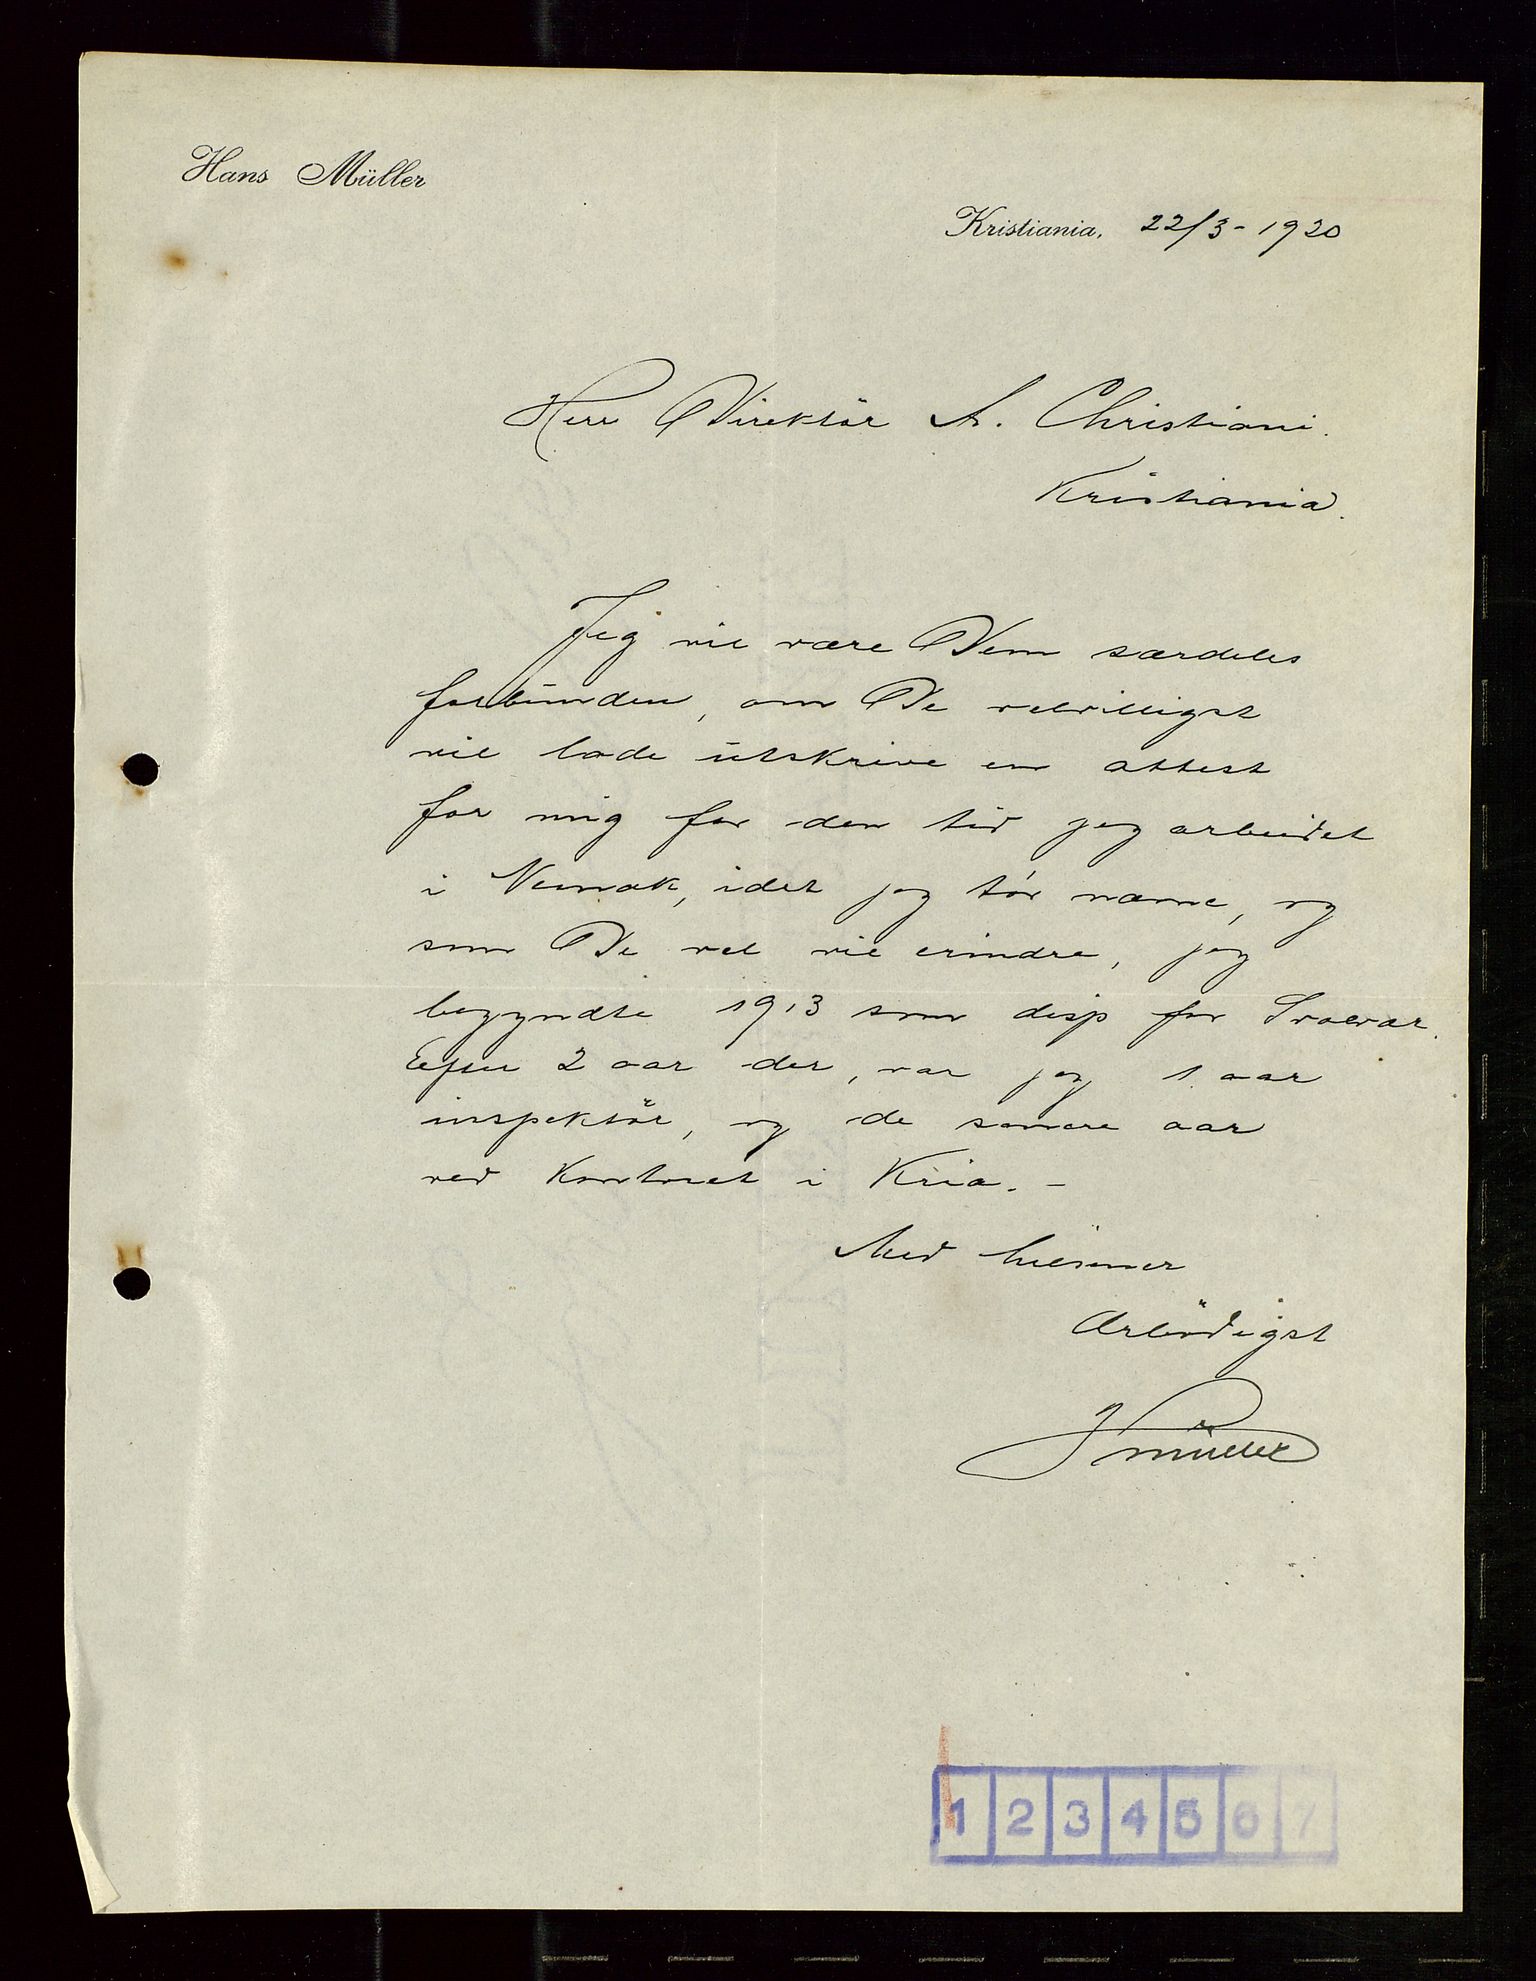 Hans Müller
Kristiania, 22/3 - 1920
Herr Direktör A. Christiani.
Kristiania.
Jeg vil være Dem særdeles
forbunden, om De velvilligst
vil lade utskrive en attest
for mig for den tid jeg arbeidet
i Vennok, idet jeg tör nævne, og
som De vel vil erindre, jeg
begyndte 1913 som disp for Svolvær.
Efter 2 aar der, var jeg 1 aar
inspektör, og de senere aar
ved Kontoret i Kria. -
Med hilsener
Ærbödigst
H Müller
1 2 3 4 5 6 7